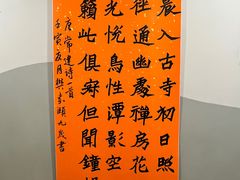 晨入古寺初日照
徑通幽處禪房花
光悅鳥性潭影空
籟此俱寂但聞鐘
唐常建詩一首
壬寅夏月 九歲書